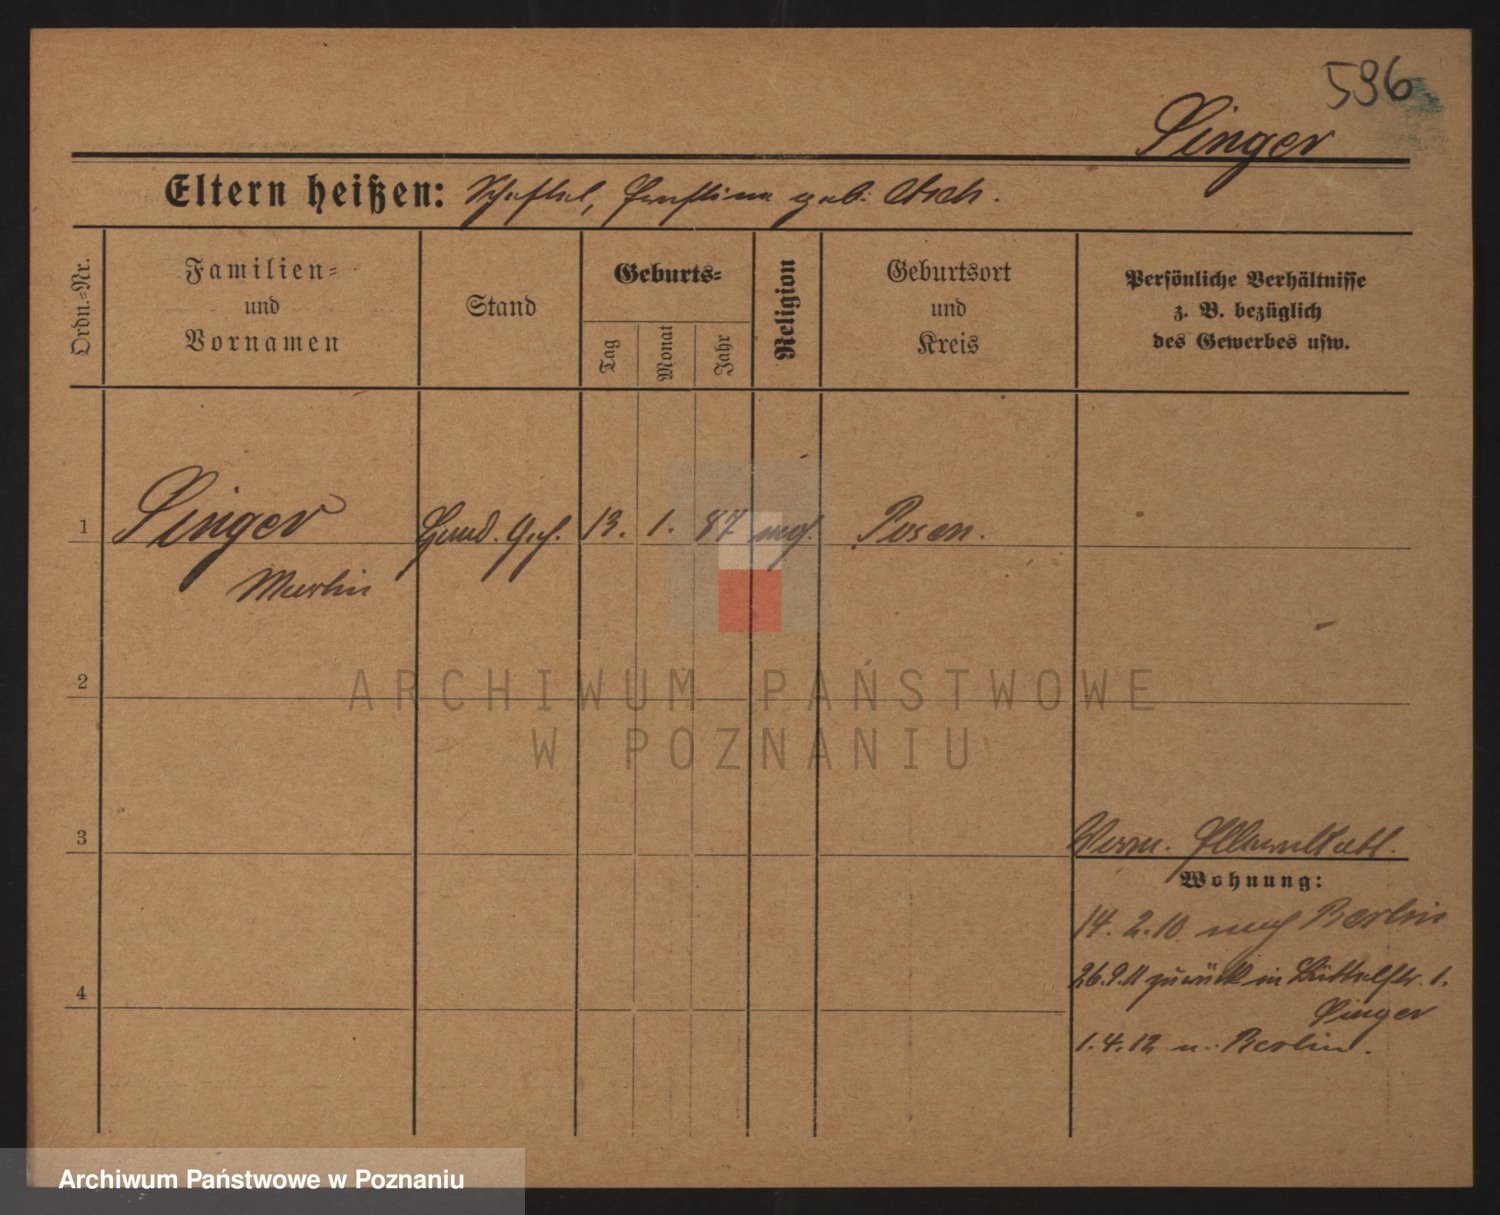 596
Singer
Eltern heißen: Scheftel, Ernstine geb. Asch.
Ordn.=Nr.
Familien=
und
Vornamen
Stand
Geburts=
Tag
Monat
Jahr
Religion
Geburtsort
und
Kreis
Persönliche Verhältnisse
z. B. bezüglich
des Gewerbes usw.
1 Singer Hand. Geh. 13. 1. 87 mos. Posen.
Martin
2
3
Wohnung:
14. 2. 10 nach Berlin
26.9.11 zurück in Büttelstr. 1.
4
Singer
1. 4. 12 n. Berlin.
ARCHIWUM PAŃSTWOWE
W POZNANIU
Archiwum Państwowe w Poznaniu